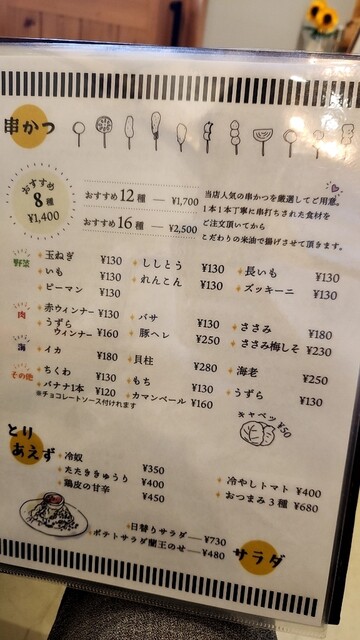 串かつ
おすすめ
8種
¥1,400
おすすめ12種 ― ¥1,700
おすすめ16種 ― ¥2,500
当店人気の串かつを厳選してご用意。
1本1本丁寧に串打ちされた食材を
ご注文頂いてから
こだわりの米油で揚げさせて頂きます。
野菜
玉ねぎ ¥130
ししとう ¥130
長いも ¥130
いも ¥130
れんこん ¥130
ズッキーニ ¥130
ピーマン ¥130
肉
赤ウィンナー ¥130
バサ ¥130
ささみ ¥180
うずら
ウィンナー ¥160
豚ヘレ ¥250
ささみ梅しそ ¥230
海
イカ ¥180
貝柱 ¥280
海老 ¥250
その他
ちくわ ¥130
もち ¥130
うずら ¥130
バナナ1本 ¥120
カマンベール ¥160
※チョコレートソース付けれます
キャベツ ¥50
とり
あえず
冷奴 ¥350
たたききゅうり ¥400
冷やしトマト ¥400
鶏皮の甘辛 ¥450
おつまみ3種 ¥680
日替りサラダ ― ¥730
ポテトサラダ蘭王のせ ― ¥480
サラダ